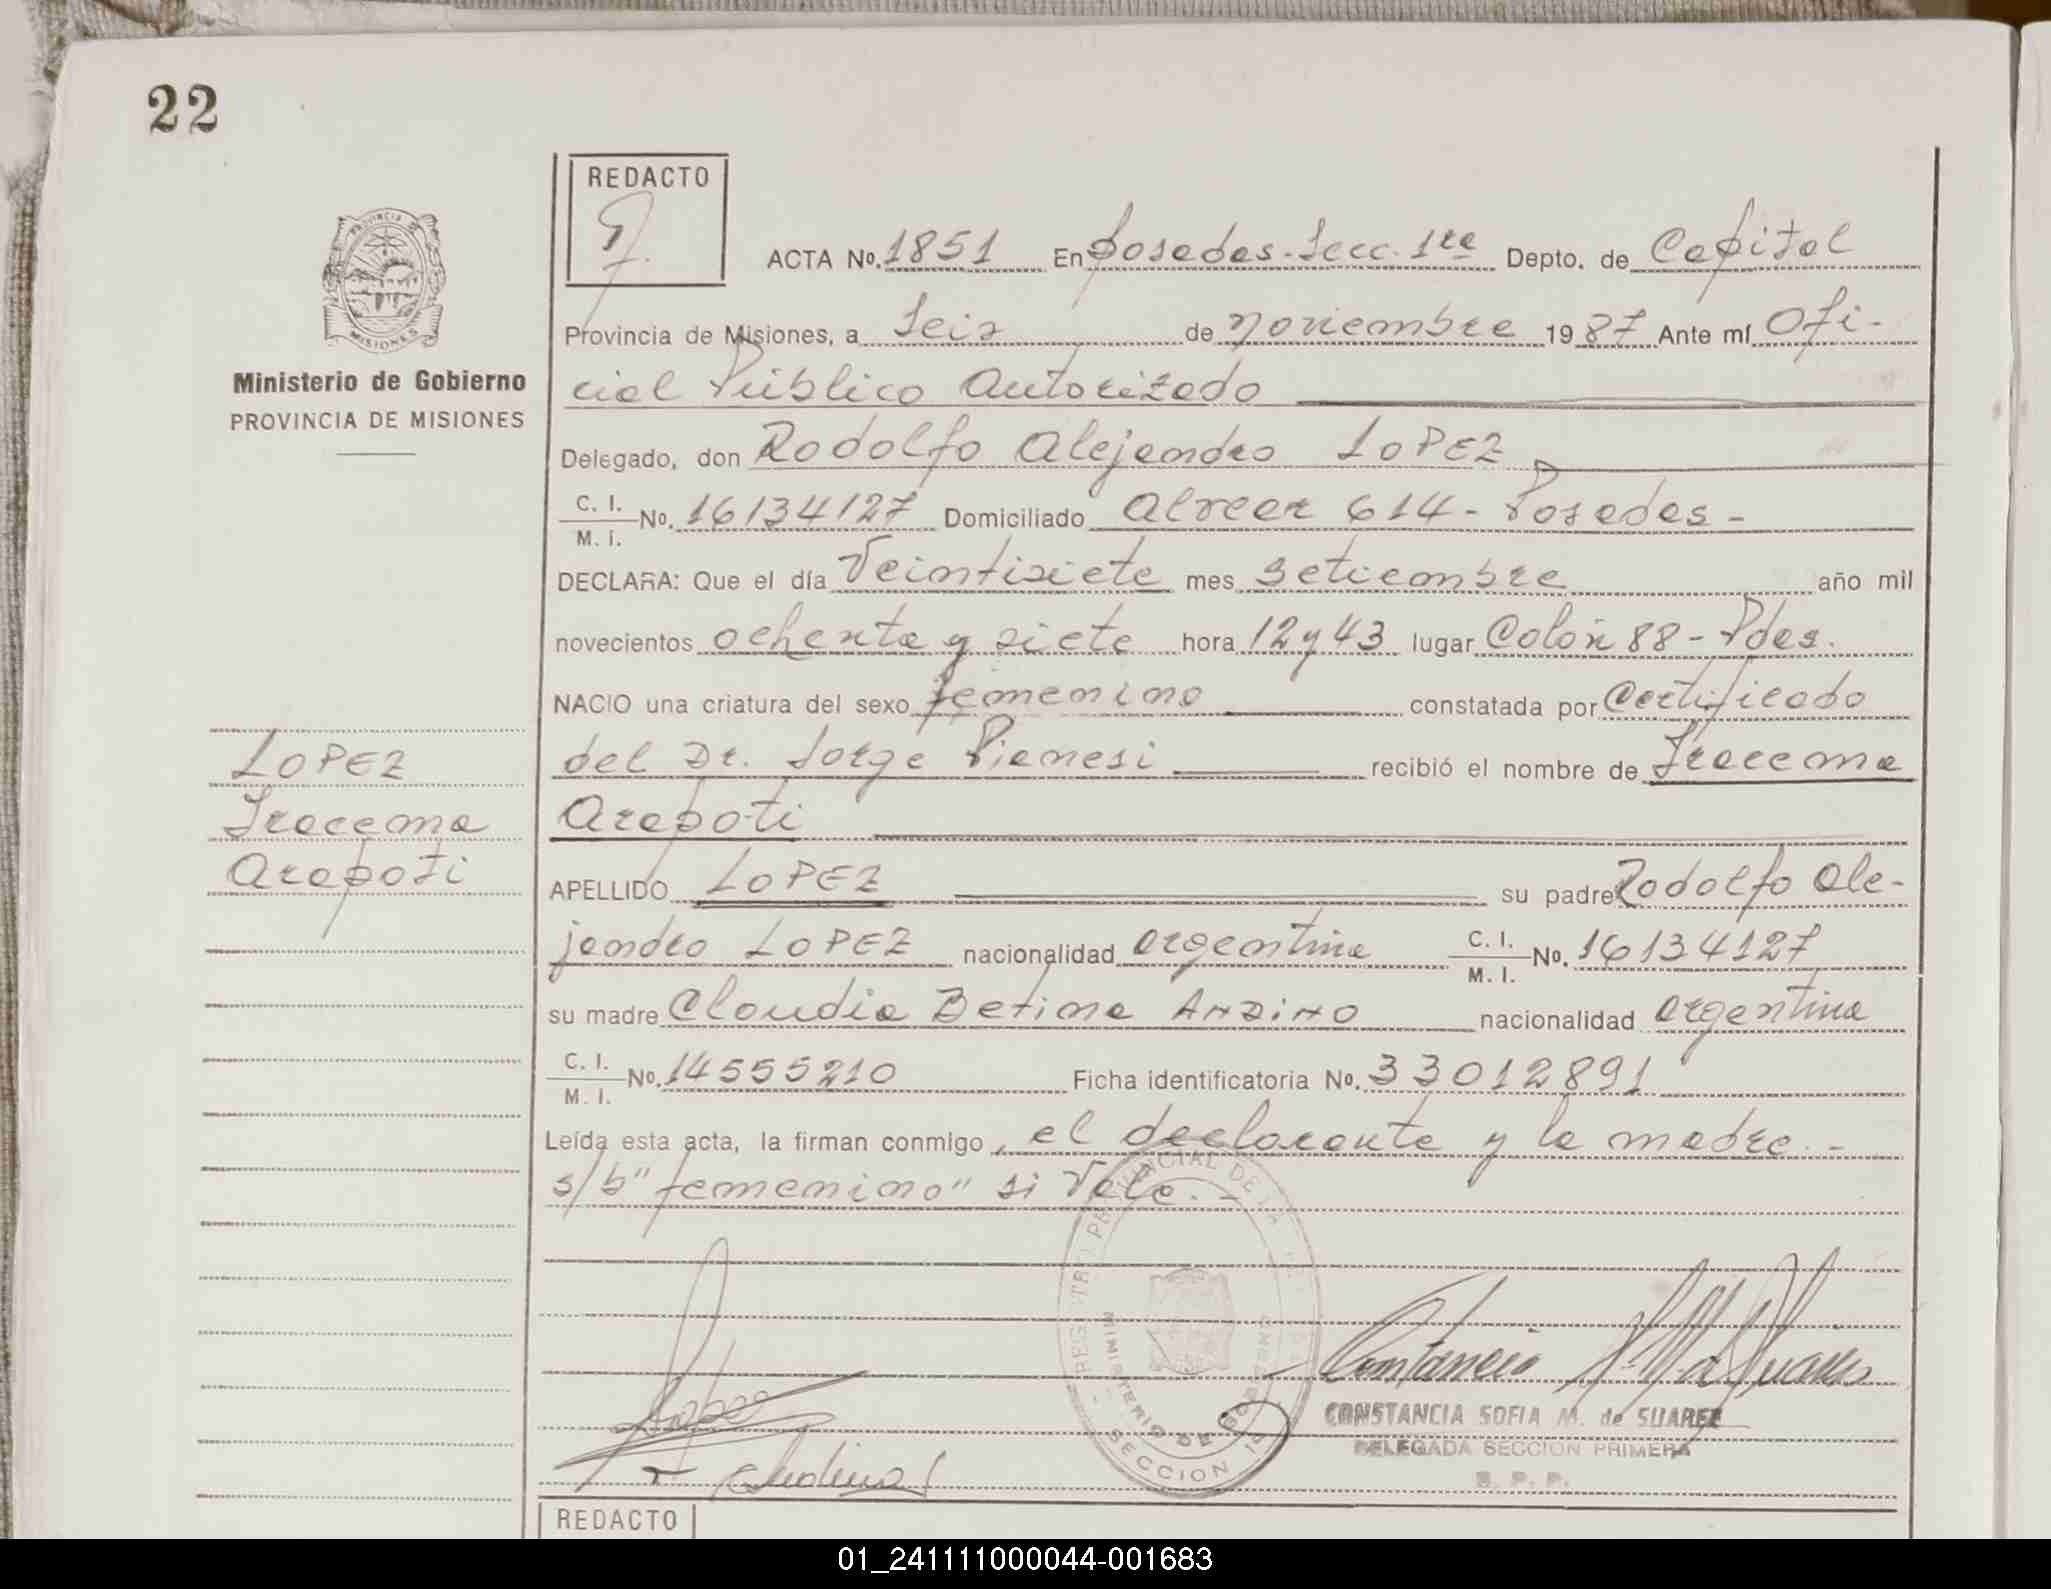 22
REDACTO
PROVINCIA DE
MISIONES
ACTA No. 1851 En Posadas-Secc. 1ra Depto. de Capital
Provincia de Misiones, a Seis de Noviembre 1987 Ante mí Ofi-
Ministerio de Gobierno
PROVINCIA DE MISIONES
cial Público Autorizado
Delegado, don Rodolfo Alejandro LOPEZ
C. I.
M. I. No. 16134127 Domiciliado Alvear 614 - Posadas -
DECLARA: Que el día Veintisiete mes Setiembre año mil
novecientos ochenta y siete hora 12 y 43 lugar Colón 88 - Pdas.
NACIO una criatura del sexo femenino constatada por Certificado
del Dr. Jorge Pianesi recibió el nombre de Iracema
Arapoti
LOPEZ
Iracema
Arapoti
APELLIDO LOPEZ su padre Rodolfo Ale-
jandro LOPEZ nacionalidad argentina C. I.
M. I. No. 16134127
su madre Claudia Betina ANDINO nacionalidad argentina
C. I.
M. I. No. 14555210 Ficha identificatoria No. 33012891
Leída esta acta, la firman conmigo, el declarante y la madre.-
s/b "femenino" si Vale.-
REGISTRO PROVINCIAL DE LA
MINISTERIO DE GOBIERNO
SECCION 1ª
CONSTANCIA SOFIA M. de SUAREZ
DELEGADA SECCION PRIMERA
R. P. P.
REDACTO
01_241111000044-001683